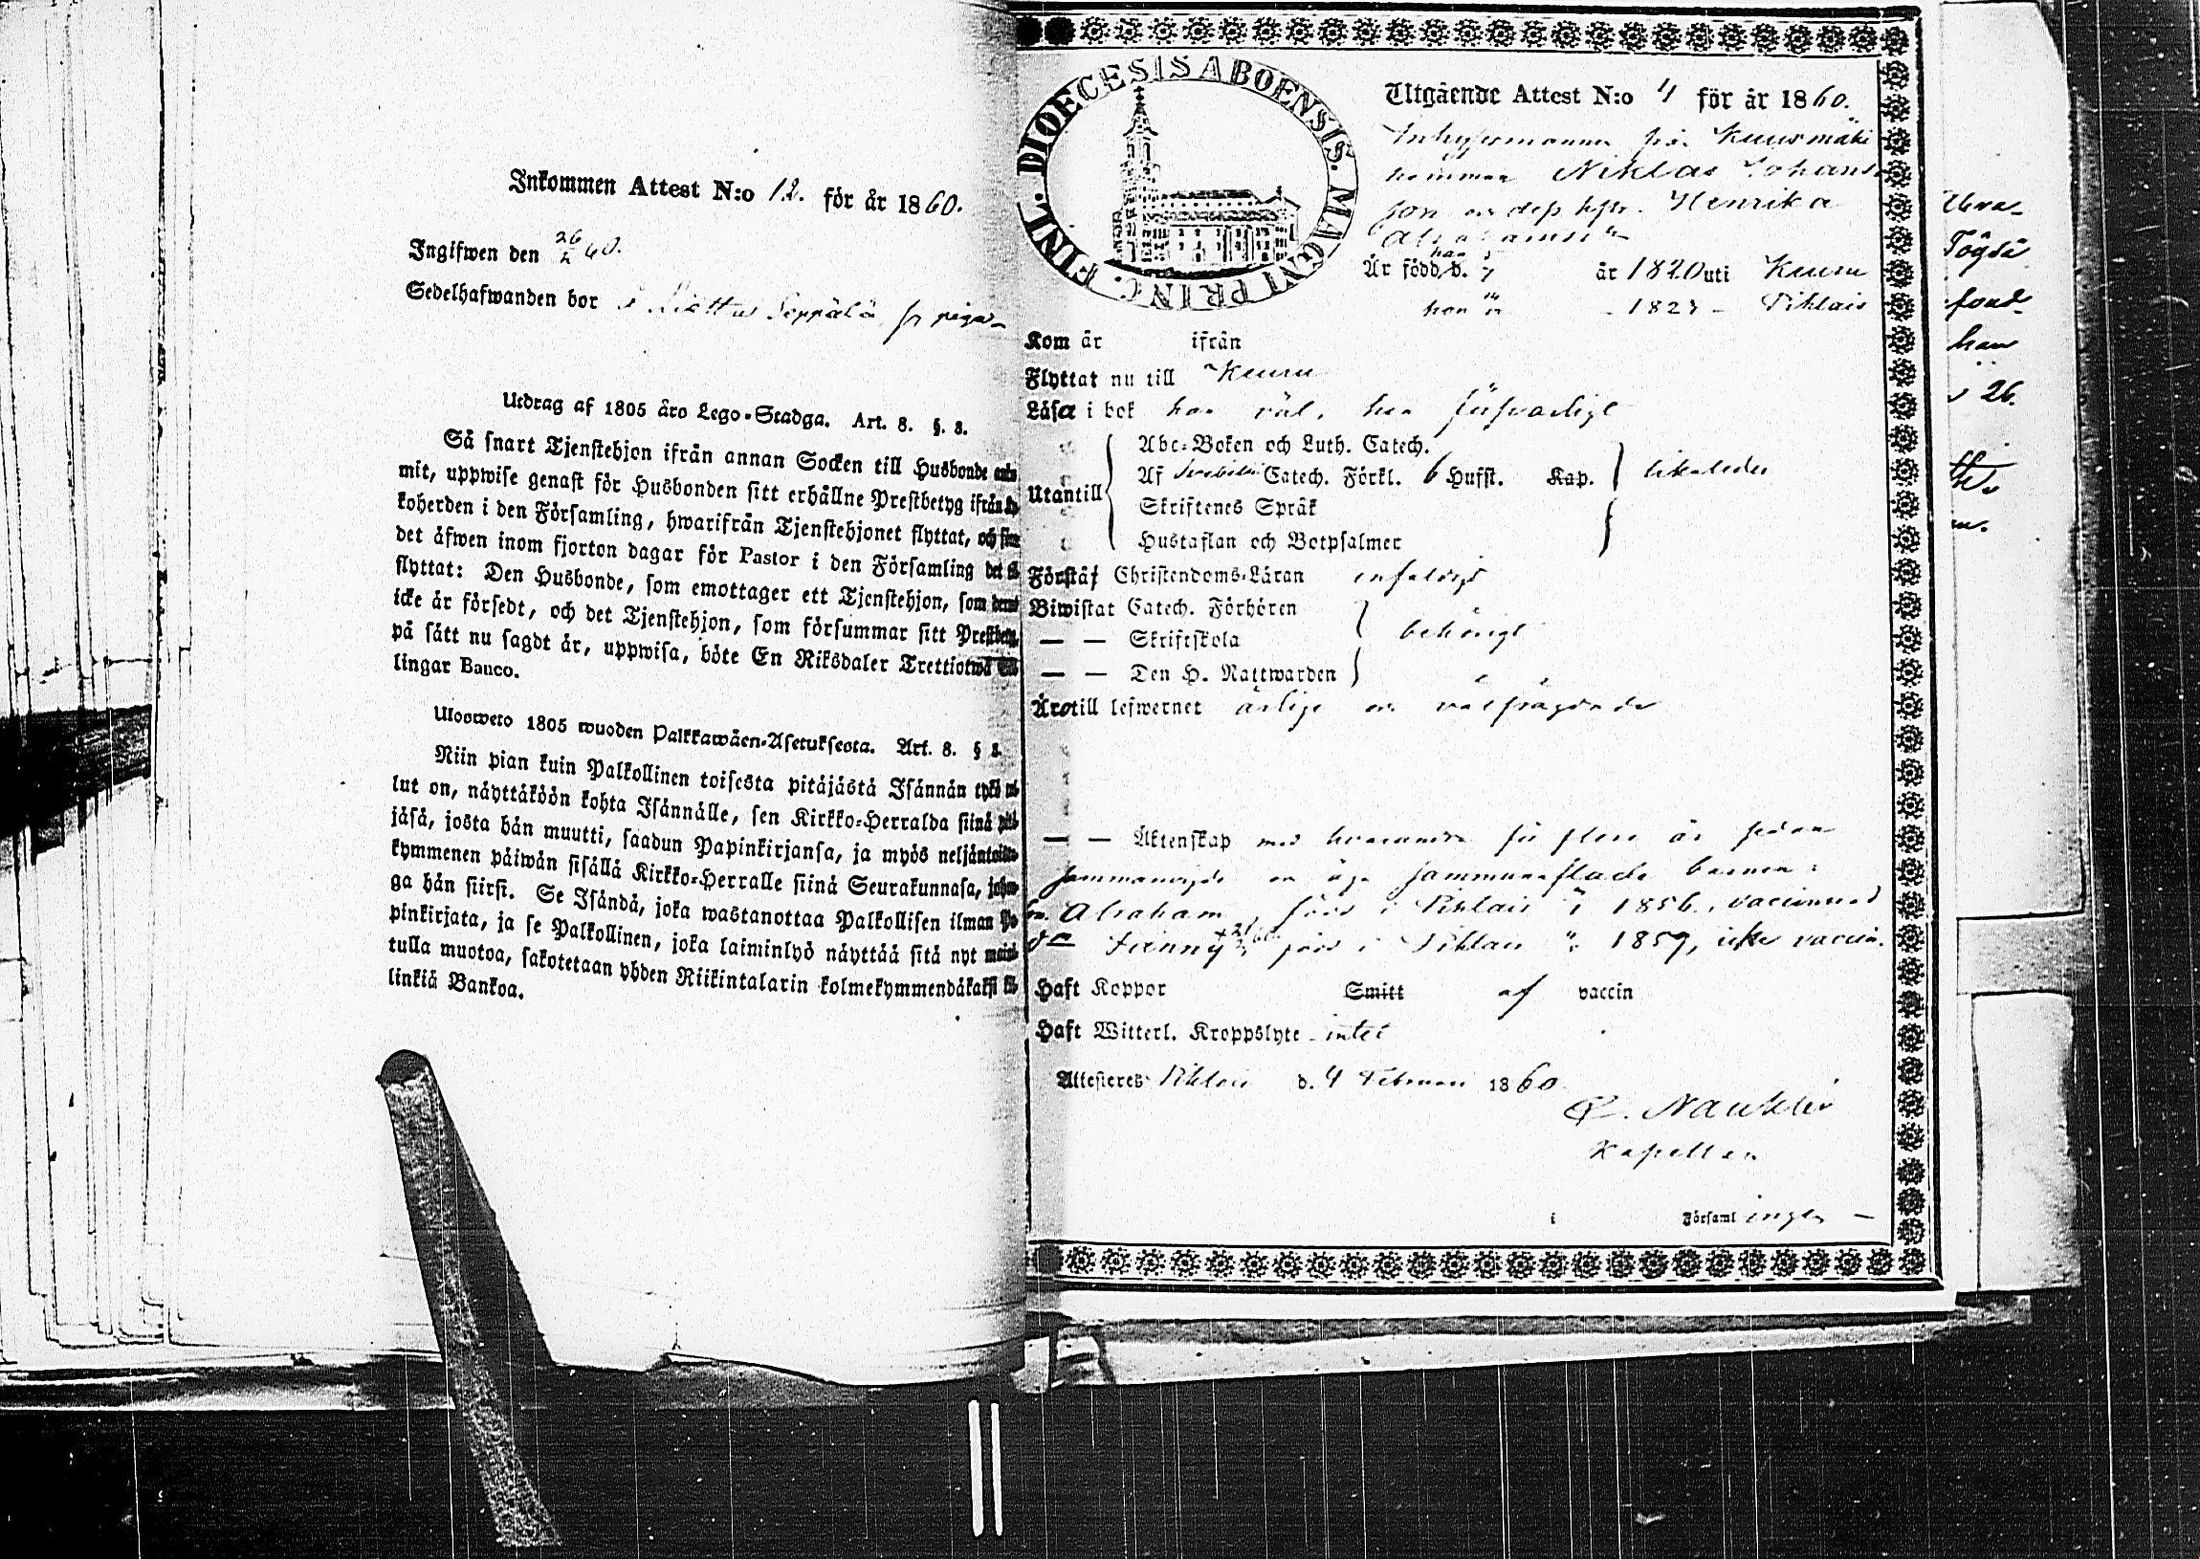 Inkommen Attest N:o 12. för år 1860.
Ingifwen den 26/2 60.
Sedelhafwanden bor Seppälä
Utdrag af 1805 års Lego-Stadga. Art. 8. §. 8.
Så snart Tjenstehjon ifrån annan Socken till Husbonde
mit, uppwise genast för Husbonden sitt erhållne Prestbetyg ifrån
koherden i den Församling, hwarifrån Tjenstehjonet flyttat, och
det äfwen inom fjorton dagar för Pastor i den Församling det
flyttat: Den Husbonde, som emottager ett Tjenstehjon, som
icke är försedt, och det Tjenstehjon, som försummar sitt
på sätt nu sagdt är, uppwisa, böte En Riksdaler Trettiotwå
lingar Banco.
Ulosweto 1805 wuoden Palkkawäen-Asetuksesta. Art. 8. § 8.
Niin pian kuin Palkollinen toisesta pitäjästä Isännän tykö
lut on, näyttäköön kohta Isännälle, sen Kirkko-Herralda siinä
jäsä, josta hän muutti, saadun Papinkirjansa, ja myös
kymmenen päiwän sisällä Kirkko-Herralle siinä Seurakunnasa,
ga hän siirsi. Se Isändä, joka wastanottaa Palkollisen ilman
pinkirjata, ja se Palkollinen, joka laiminlyö näyttää sitä nyt
tulla muotoa, sakotetaan yhden Riikintalarin kolmekymmendäkaksi
linkiä Bankoa.
FINL. DIOECESIS ABOENSIS. MAGNI PRINC.
Utgående Attest N:o 4 för år 1860.
Inhysesmannen från Kuusmäki
hemman Niklas Johans
son och dess hstr. Henrika
Abrahamsdr
Är född d. han år 1820 uti Kuru
hon 1823 - Pihlais
Kom år ifrån
Flyttat nu till Kuru
Läsa i bok han väl, hon försvarligt
Utantill
Abc-Boken och Luth. Catech.
Af Svebelii Catech. Förkl. 6 Hufst. Kap. likaledes
Skriftenes Språk
Hustaflan och Botpsalmer
Förstå Christendoms-Läran enfaldigt
Biwistat Catech. Förhören
— — Skriftskola behörigt
— — Den H. Nattwarden
Äro till lefwernet ärlige och välfrägdade
— — Äktenskap med hvarandra för flere år sedan
sammanvigde och äga sammanaflade barnen:
Abraham, född i Pihlais 1856, vaccinerad
Fanny född i Pihlais 1859, icke vaccin.
Haft Koppor Smitt af vaccin
Haft Witterl. Kroppslyte intet
Attesteres Pihlais d. 4 Februari 1860
Nauklér
Kapellan
i Församlingen —
Abra-
han
26.